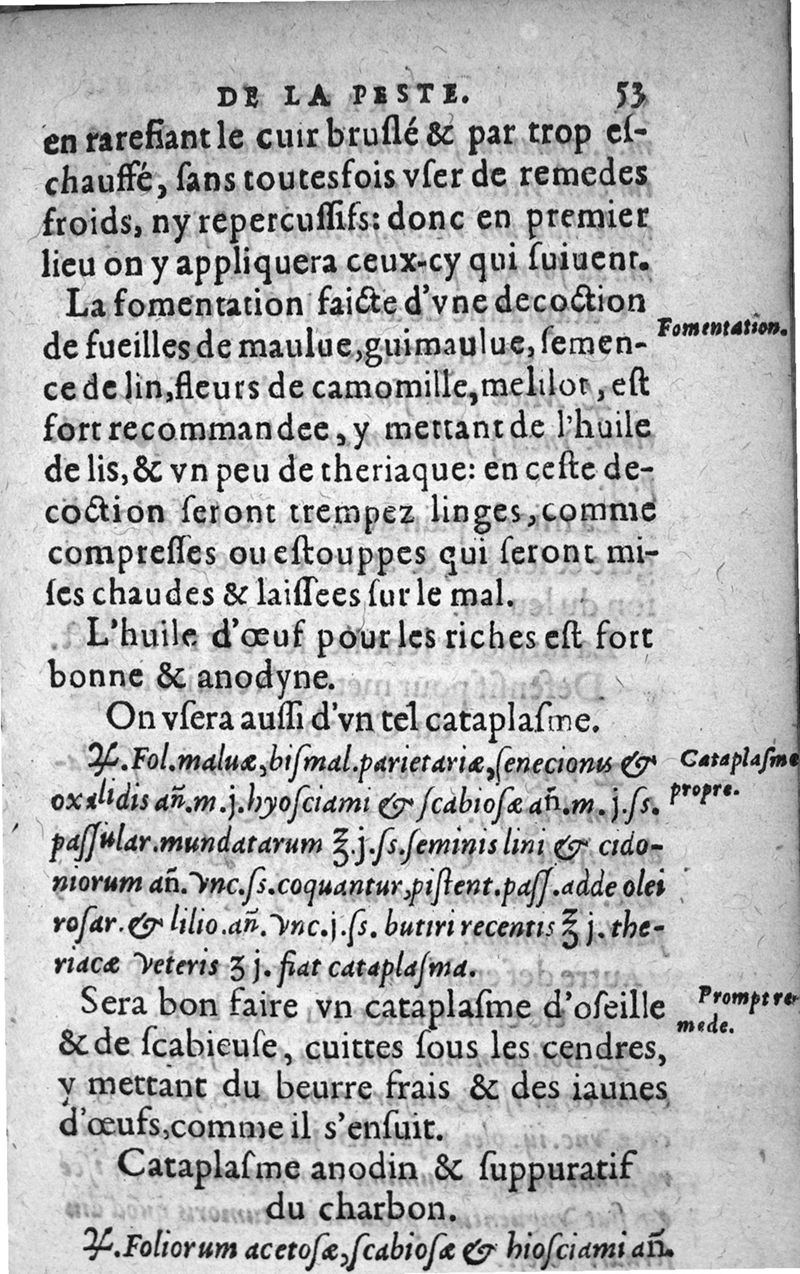 DE LA PESTE. 53
en rarefiant le cuir bruslé & par trop eſ-
chauffé, ſans toutesfois vſer de remedes
froids, ny repercuſſifs: donc en premier
lieu on y appliquera ceux-cy qui ſuiuent.
La fomentation faicte d'vne decoction
Fomentation.
de fueilles de maulue, guimaulue, ſemen-
ce de lin, fleurs de camomille, melilot, eſt
fort recommandee, y mettant de l'huile
de lis, & vn peu de theriaque: en ceſte de-
coction ſeront trempez linges, comme
compreſſes ou eſtouppes qui ſeront mi-
ſes chaudes & laiſſees ſur le mal.
L'huile d'œuf pour les riches eſt fort
bonne & anodyne.
On vſera auſſi d'vn tel cataplaſme.
℞. Fol. maluæ, biſmal. parietariæ, ſenecionis &
Cataplaſme
oxalidis añ. m. j. hyoſciami & ſcabioſæ añ. m. j. ſs.
propre.
paſſular. mundatarum ℥. j. ſs. ſeminis lini & cido-
niorum añ. vnc. ſs. coquantur, piſtent. paſſ. adde olei
roſar. & lilio. añ. vnc. j. ſs. butiri recentis ℥ j. the-
riacæ veteris ʒ j. fiat cataplaſma.
Sera bon faire vn cataplaſme d'oſeille
Prompt re-
& de ſcabieuſe, cuittes ſous les cendres,
mede.
y mettant du beurre frais & des iaunes
d'œufs, comme il s'enſuit.
Cataplaſme anodin & ſuppuratif
du charbon.
℞. Foliorum acetoſæ, ſcabioſæ & hioſciami añ.